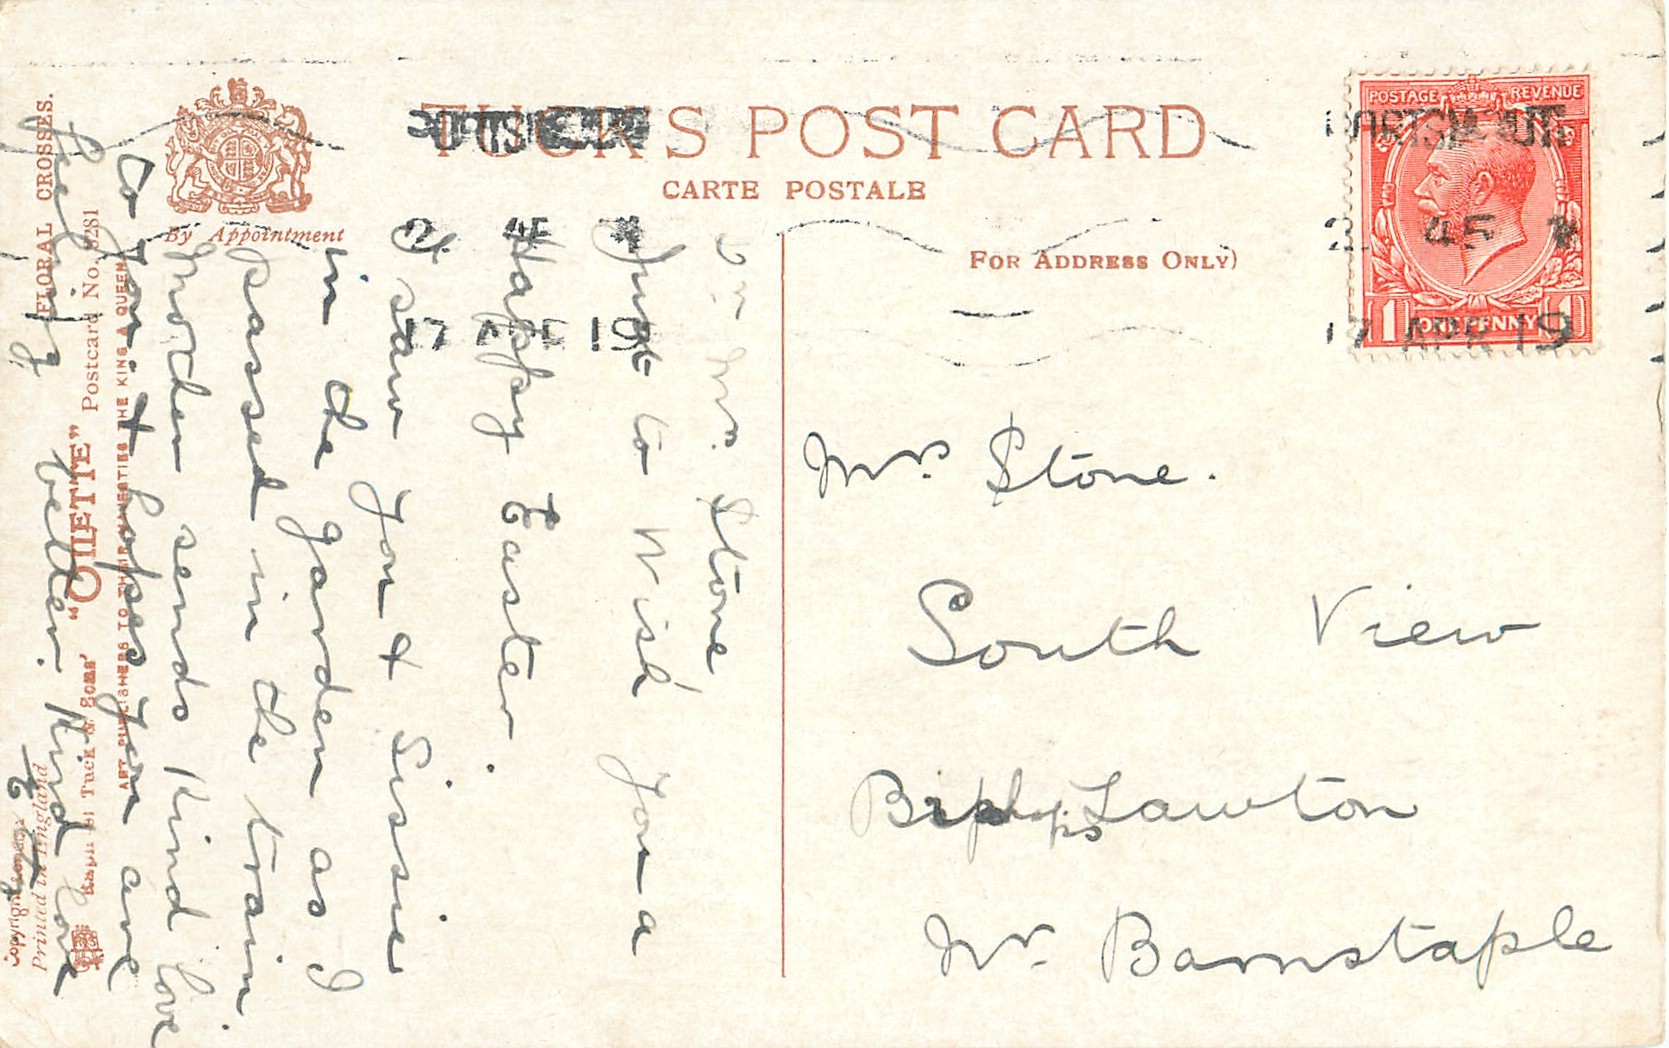 TUCK'S POST CARD
CARTE POSTALE
By Appointment
FOR ADDRESS ONLY)
POSTAGE REVENUE
1 ONE PENNY 1
PORTSMOUTH
4 15
17 APR 19
17 APR 19
Mrs. Stone
Just to Wish You a
Happy Easter.
I saw You & Sissie
in the garden as I
passed in the train.
Mother sends Kind love
to You & hopes You are
feeling better. Kind love
Mrs. Stone.
South View
Lawton
Nr. Barnstaple
FLORAL CROSSES.
"OILETTE" Postcard No. 9281
Raphael Tuck & Sons'
ART PUBLISHERS TO THEIR MAJESTIES THE KING & QUEEN
Copyright
Printed in England